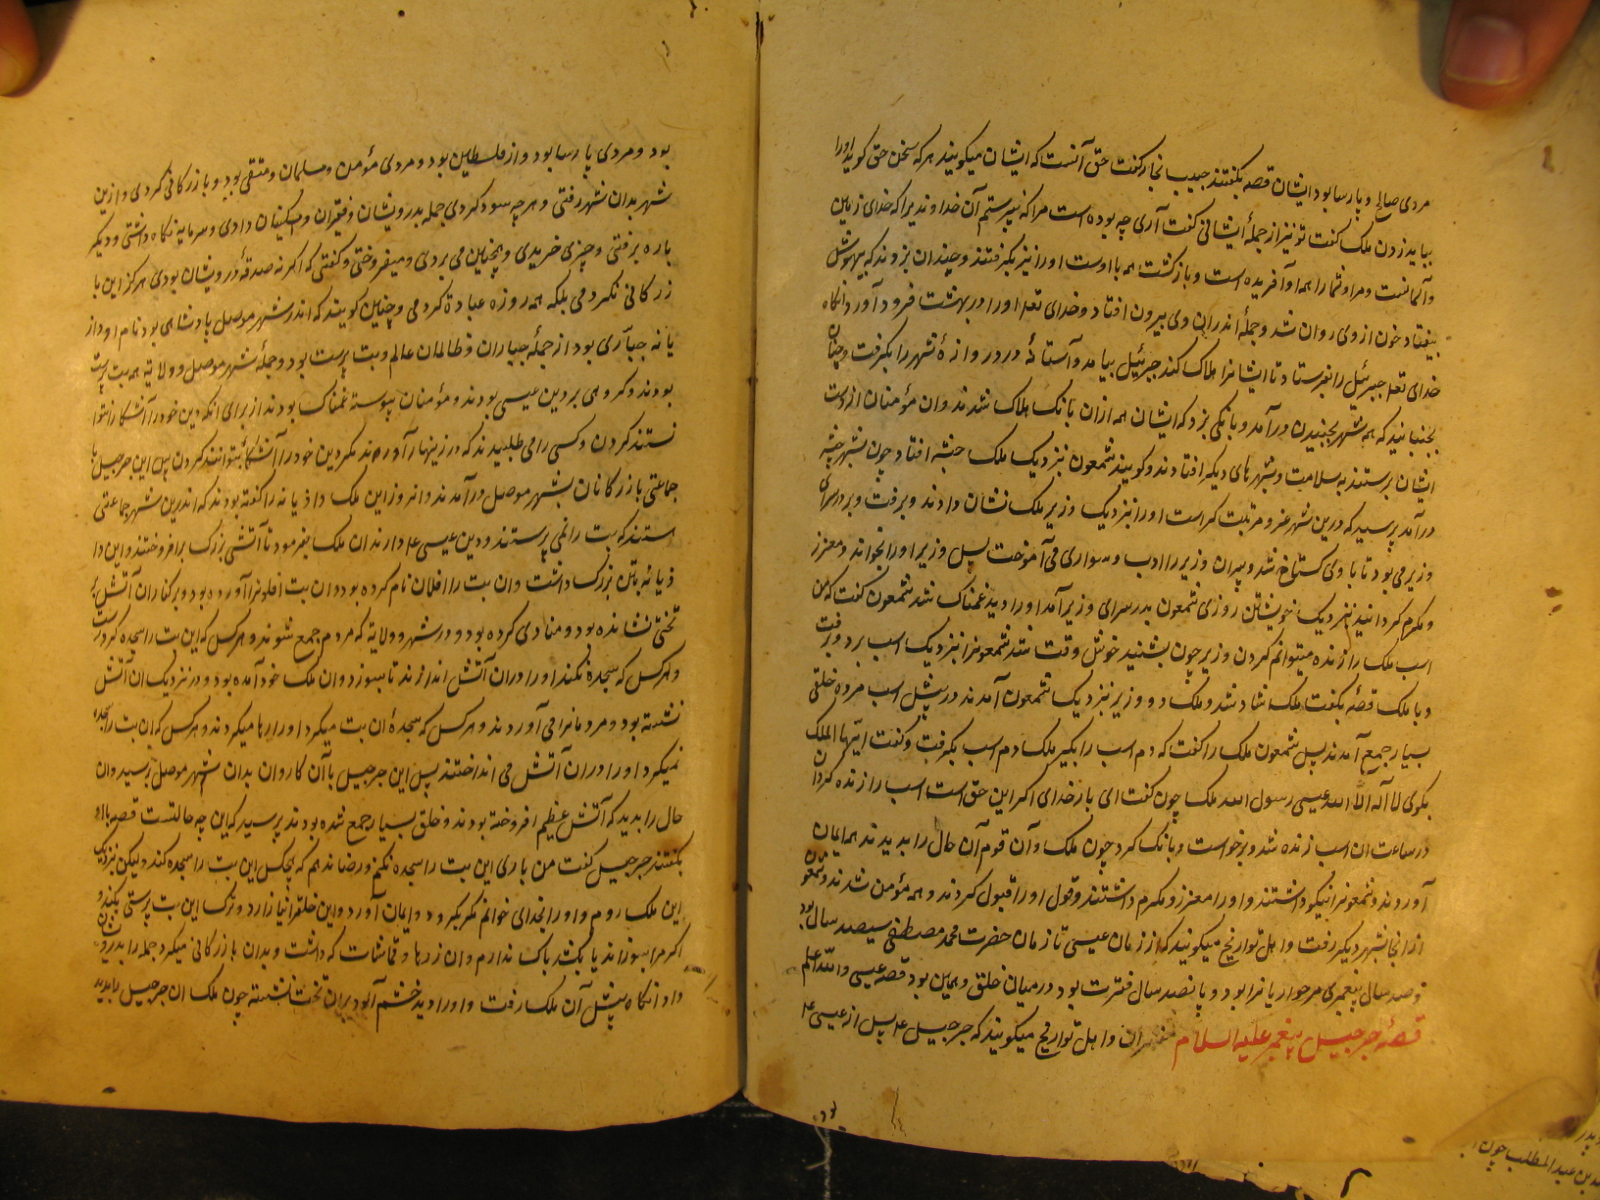 مردی صالح و پارسا بود ایشان قصه بگفتند حبیب نجار گفت حق آنست که ایشان میگویند هر که سخن حق گوید اورا
بباید زدن ملک گفت تو نیز از جملهٔ ایشانی گفت آری چه بوده است مرا که نپرستم آن خداوندیرا که خدای زمین
و آسمانست و مرا و شما را همه او آفریده است و بازگشت همه با اوست اورا نیز بگرفتند و چندان بزدند که بیهوش
بیفتاد خون از وی روان شد و جملهٔ اندران وی بیرون افتاد و خدای تعه اورا در بهشت فرود آورد انکاه
خدای تعه جبرییل را بفرستاد تا ایشانرا هلاک کند جبرییل بیامد و آستانهٔ در دروازهٔ شهر را بگرفت و چنان
بجنبانید که همه شهر بجنبیدن درآمد و بانکی بزد که ایشان همه ازان بانک هلاک شدند وان مؤمنان از دست
ایشان برستند به سلامت و بشهرهای دیگر افتادند و گویند شمعون نزدیک ملک حبشه افتاد چون بشهر حبشه
درآمد پرسید که درین شهر عز و مرتبت کراست اورا نزدیک وزیر ملک نشان دادند و برفت و بر در سرای
وزیر می بود تا با وی گستاخ شد و پسران وزیر را ادب و سواری می آموخت پس وزیر اورا بخواند و معزز
و مکرم گردانید نزدیک خویشتن روزی شمعون بدر سرای وزیر آمد اورا دید غمناک شد شمعون گفت که من
اسب ملک را زنده میتوانم کردن وزیر چون بشنید خوش وقت شد شمعونرا نزدیک اسب برد و برفت
و با ملک قصه بگفت ملک شاد شد و ملک و وزیر نزدیک شمعون آمدند در پیش اسب مرده خلقی
بسیار جمع آمدند پس شمعون ملک را گفت که دم اسب را بگیر ملک دم اسب بگرفت و گفت ایها الملک
بگوی لا آله الا الله عیسی رسول الله ملک چون گفت ای بار خدای اکر این حق است اسب را زنده گردان
در ساعت ان اسب زنده شد و برخواست و بانک کرد چون ملک و آن قوم آن حال را بدیدند همه ایمان
آوردند و شمعونرا نیکو داشتند و اورا معزز و مکرم داشتند و قول اورا قبول کردند و همه مؤمن شدند و شمعون
از انجا بشهر دیگر رفت و اهل تواریخ میگویند که از زمان عیسی تا زمان حضرت محمد مصطفی سیصد سال بود
و صد سال پیغمبری مر حواریانرا بود و پانصد سال فترت بود در میان خلق و همین بود قصه عیسی والله اعلم
قصهٔ جرجیس پیغمبر علیه السلام مفسران و اهل تواریخ میگویند که جرجیس ع پس از عیسی ع
بود
بود و مردی پارسا بود و از فلسطین بود و مردی مؤمن و مسلمان و متقی بود و بازرگانی کردی و ازین
شهر بدان شهر رفتی و هر چه سود کردی جمله بدرویشان و فقیران و مسکینان دادی و سرمایه نگاه داشتی و دیگر
باره برفتی و چیزی خریدی و همچنین می بردی و میفروختی و گفتی که اکر نه صدقهٔ درویشان بودی هرگز این با
زرگانی نکردمی بلکه همه روزه عبادة کردمی و چنین گویند که اندر شهر موصل پادشاهی بود نام او داز
یانه جباری بود از جملهٔ جباران و ظالمان عالم و بت پرست بود و جملهٔ شهر موصل و ولایه همه بت پرست
بودند و گروهی بر دین عیسی بودند و مؤمنان پیوسته غمناک بودند از برای انکه دین خود را آشکارا نتوا
نستند کردن و کسی را می طلبیدند که در زینهار آورند مگر دین خود را آشکارا بتوانند کردن پس این جرجیس با
جماعتی بازرگانان بشهر موصل درآمدند و انروز این ملک داذیانه را گفته بودند که اندرین شهر جماعتی
هستند که بت را نمی پرستند و دین عیسی ع دارند ان ملک بفرمود تا آتشی بزرگ برافروختند و این دا
ذیانه بتی بزرگ داشت وان بت را افلان نام کرده بود و ان بت افلونرا آورده بود و بر کناران آتش بر
تختی نشانده بود و منادی کرده بود و در شهر و ولایه که مردم جمع شوند و هر کس که این بت را سجده کردرست
و هر کس که سجده نکند اورا در ان آتش اندازند تا بسوزد وان ملک خود آمده بود و در نزدیک ان آتش
نشسته بود و مردمانرا می آوردند و هر کس که سجدهٔ ان بت میکرد اورا رها میکردند و هر کس که ان بت را سجده
نمیکرد اورا در ان آتش می انداختند پس این جرجیس با آن کاروان بدان شهر موصل رسید وان
حال را بدید که آتش عظیم افروخته بودند و خلق بسیار جمع شده بودند پرسید که این چه حالتست قصه با او
بگفتند جرجیس گفت من باری این بت را سجده نکنم و رضا ندهم که هیچکس این بت را سجده کند ولیکن نزدیک
این ملک روم و اورا بخدای خوانم مکر بگرود و ایمان آورد و این خلقرا نیازارد و ترک این بت پرستی بکند و
اکر مرا بسوزاند یا بکشد باک ندارم وان زرها و قماشات که داشت و بدان بازرگانی میکرد جمله را بدرویشان
داد انگاه پیش آن ملک رفت و اورا دید خشم آلود بران تخت نشسته چون ملک ان جرجیس را بدید